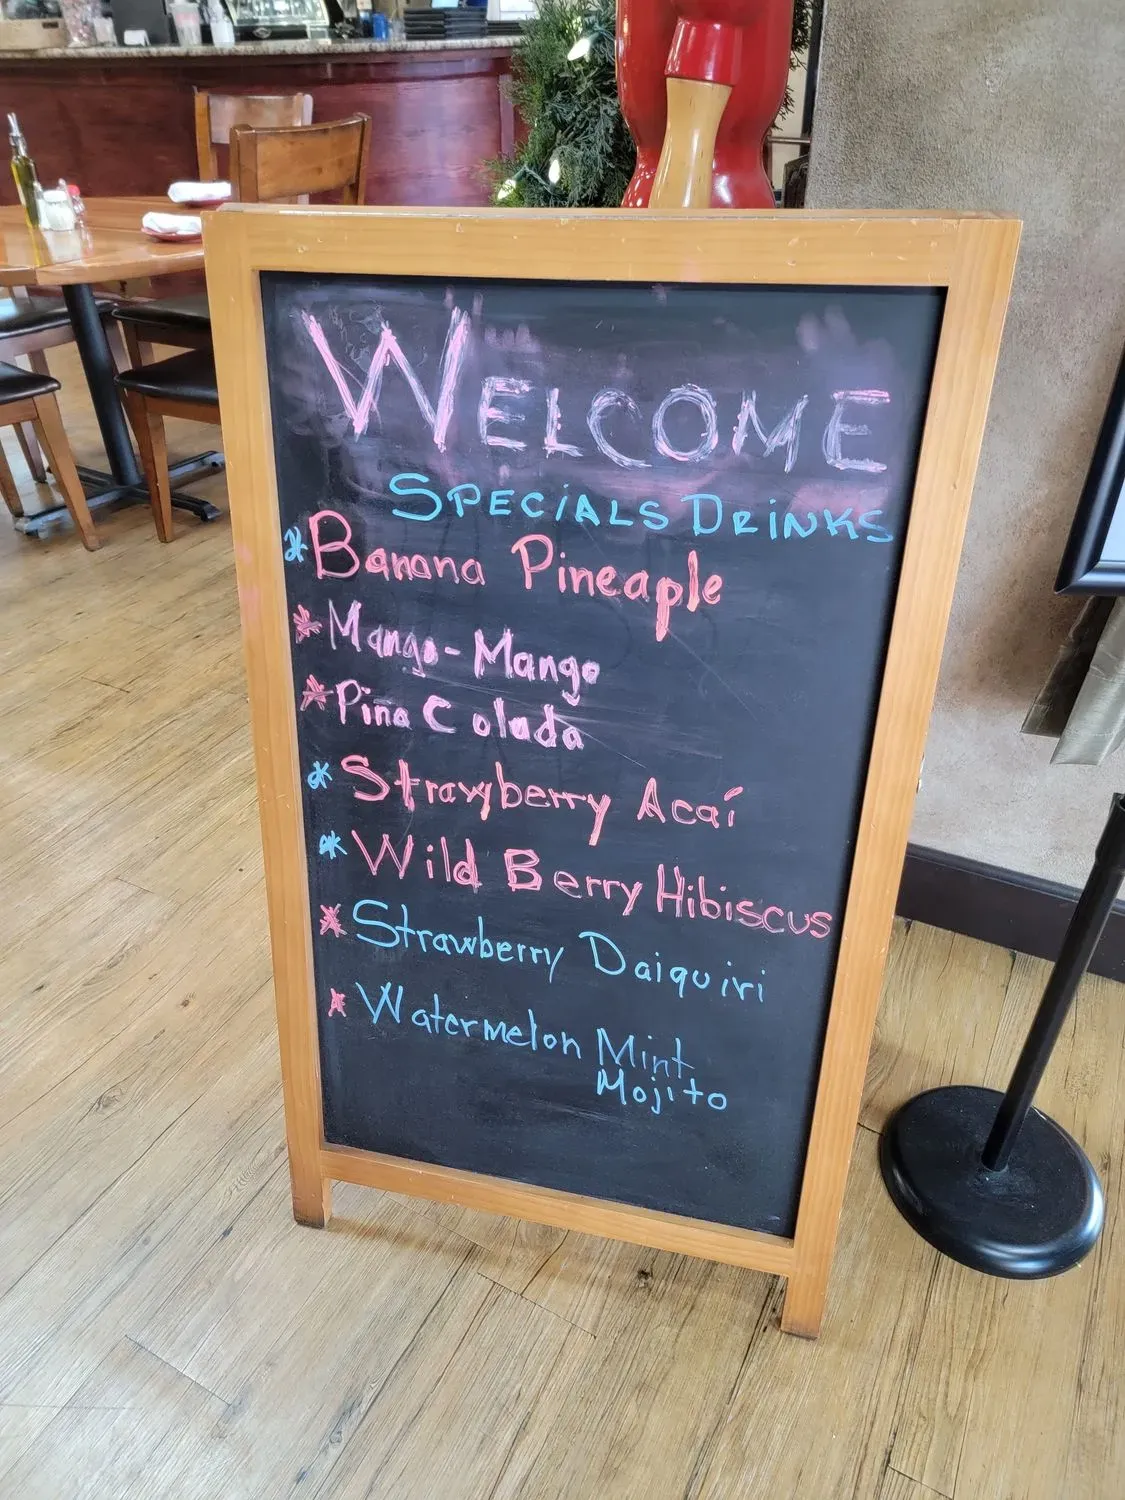 WELCOME
SPECIALS DRINKS
* Banana Pineaple
* Mango-Mango
* Piña Colada
* Strawberry Acaí
* Wild Berry Hibiscus
* Strawberry Daiquiri
* Watermelon Mint
Mojito